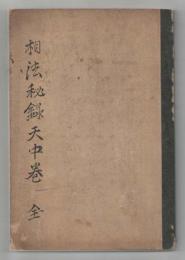 相法秘録天中巻 全